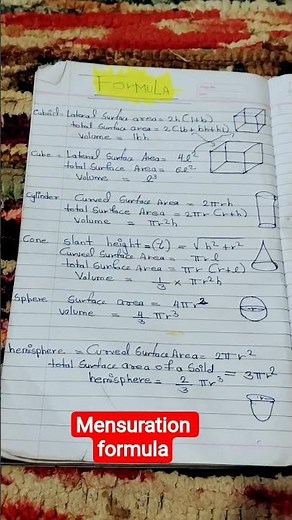 FORMULA
Cuboid = Lateral Surface area = 2h(l+b)
total Surface area = 2(lb+bh+hl)
volume = lbh
Cube = Lateral Surface Area = 4l²
total Surface Area = 6l²
Volume = l³
Cylinder Curved Surface Area = 2πrh
total Surface Area = 2πr (r+h)
volume = πr²h
Cone slant height = (l) = √h²+r²
Curved Surface Area = πrl
total Surface Area = πr (r+l)
Volume = 1/3 × πr²h
Sphere Surface area = 4πr²
volume = 4/3 πr³
hemisphere = Curved Surface Area = 2πr²
total Surface area of a Solid = 3πr²
hemisphere = 2/3 πr³
Mensuration
formula